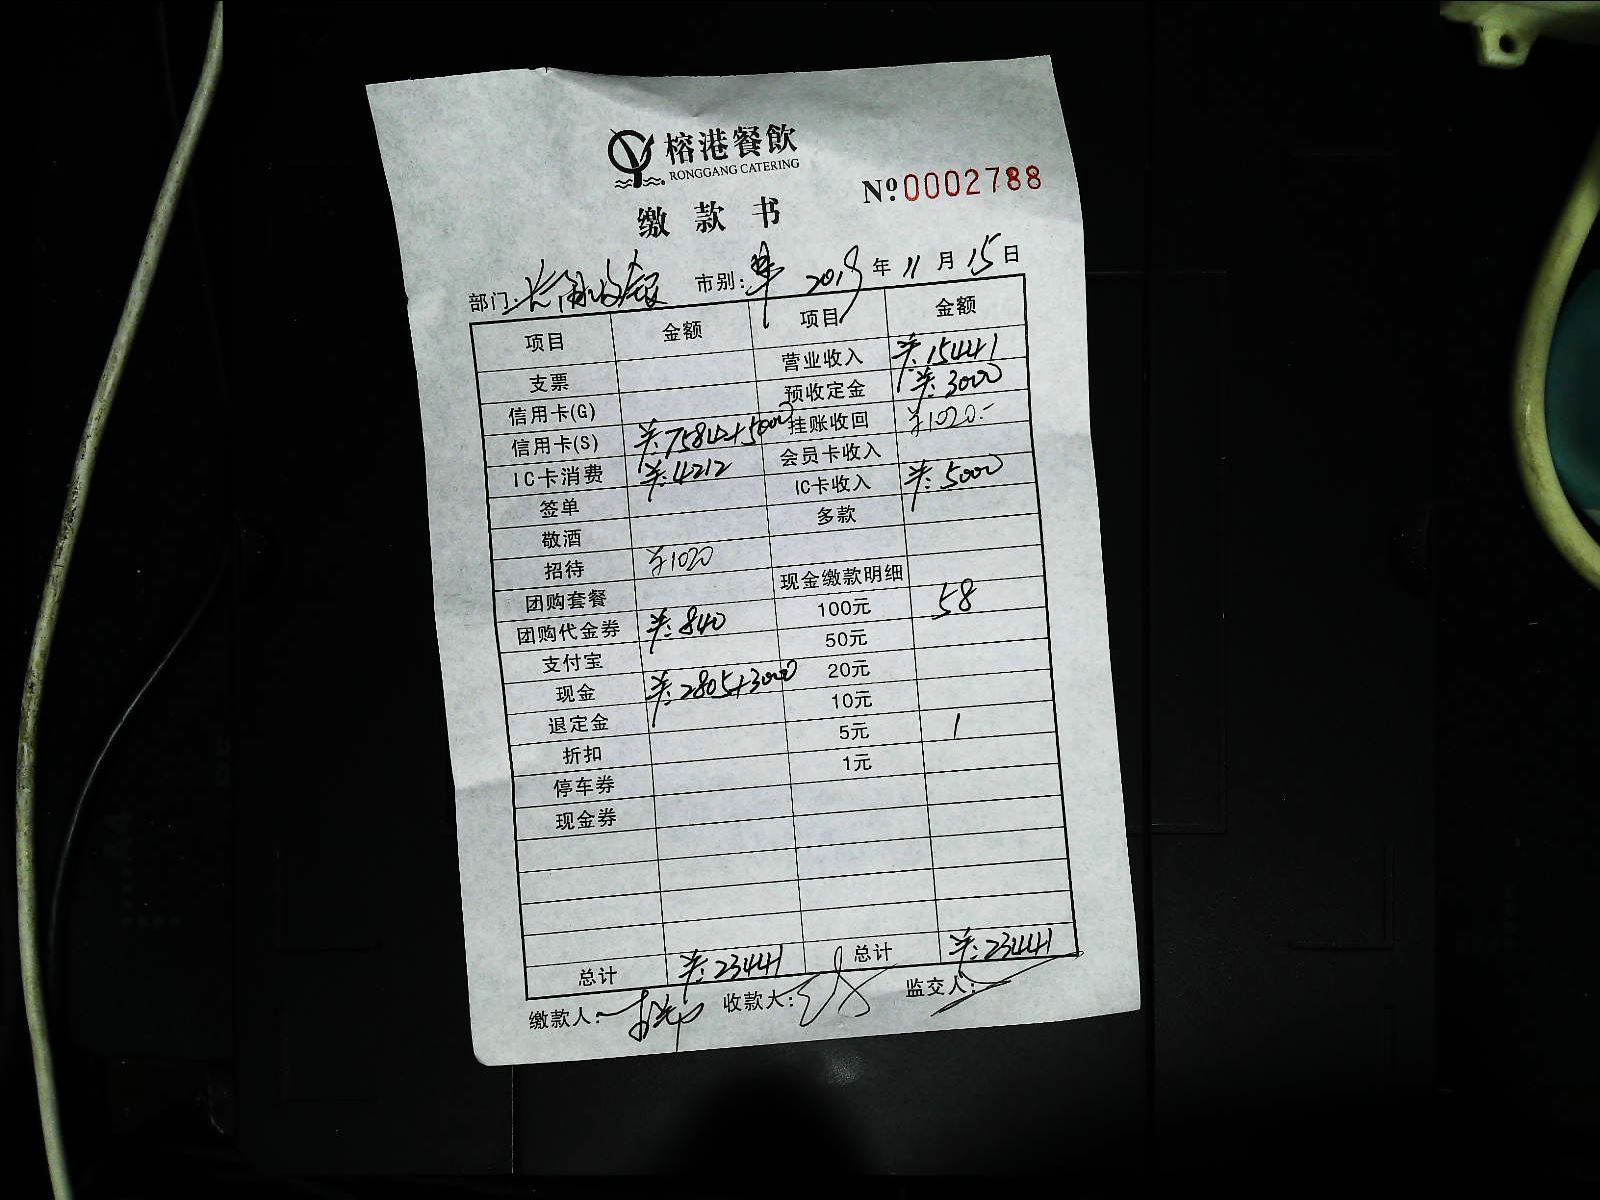 榕港餐飲
RONGGANG CATERING
№0002788
缴款书
部门: 市别: 2019年11月15日
项目 金额 项目 金额
支票 营业收入 ¥:15441
信用卡(G) 预收定金 ¥:3000
信用卡(S) ¥:7584+5000 挂账收回 ¥1020.-
IC卡消费 ¥:4212 会员卡收入
签单 IC卡收入 ¥:5000
敬酒 多款
招待 ¥1020
团购套餐 现金缴款明细
团购代金券 ¥:840 100元 58
支付宝 50元
现金 ¥:2805+3000 20元
退定金 10元
折扣 5元 1
停车券 1元
现金券
总计 ¥:23441 总计 ¥:23441
缴款人: 收款大: 监交人: